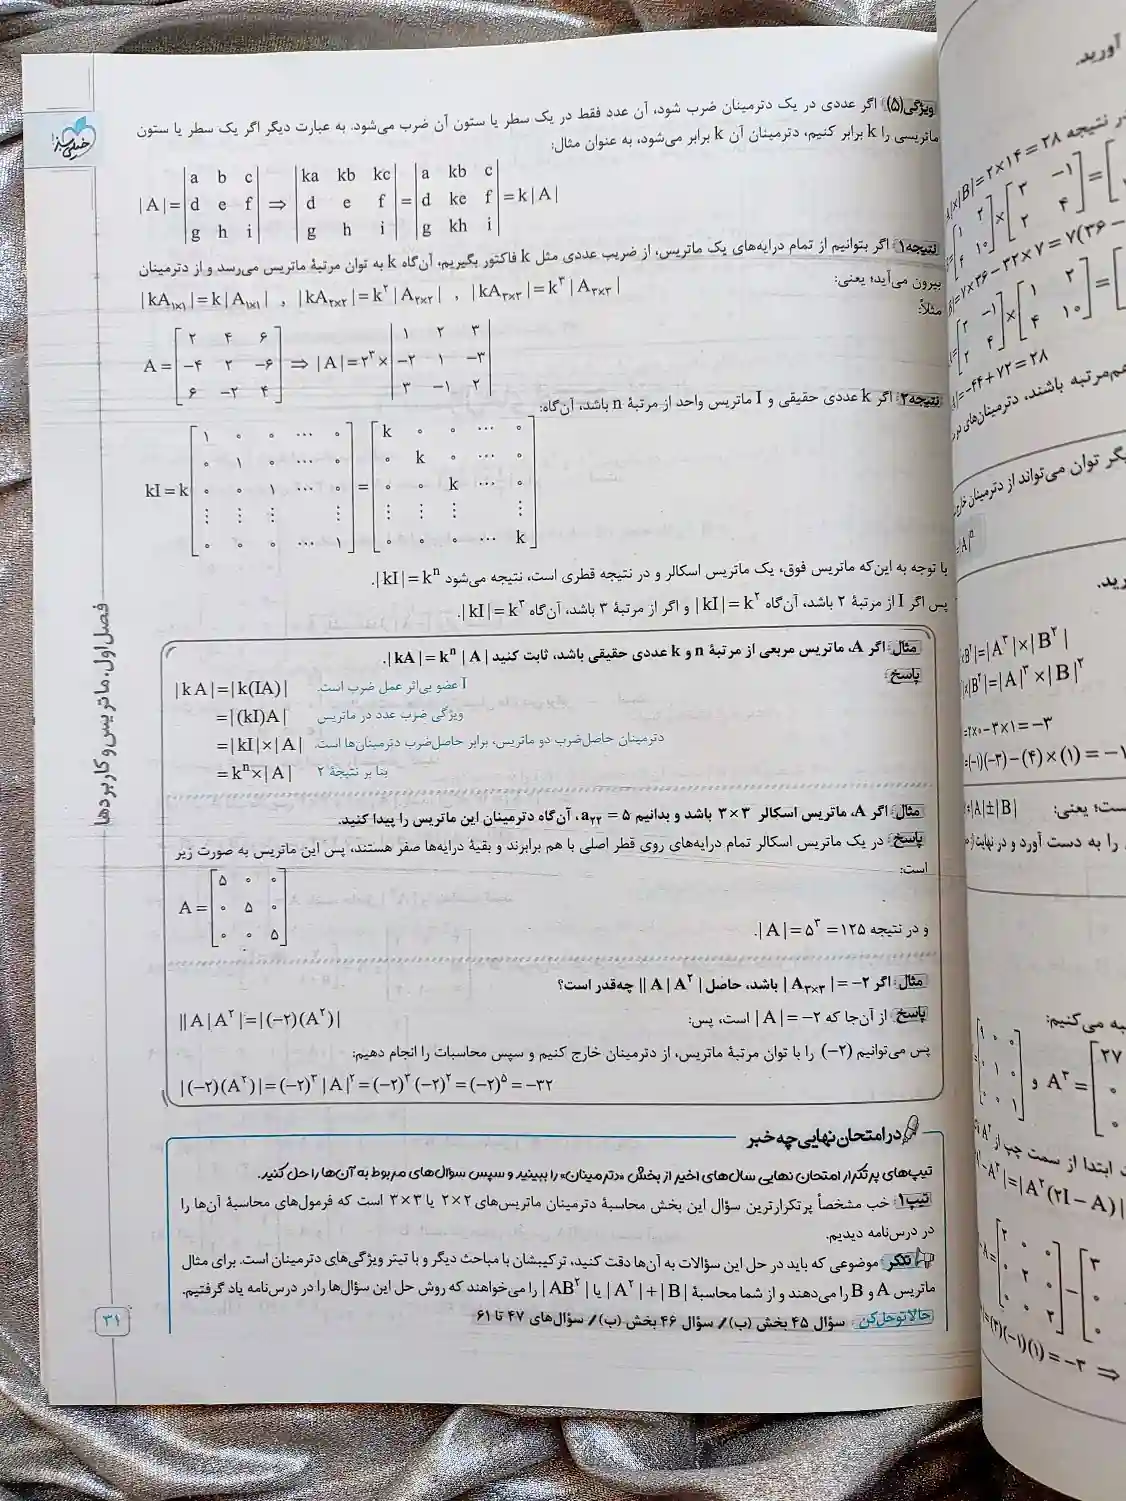 ویژگی(۵) اگر عددی در یک دترمینان ضرب شود، آن عدد فقط در یک سطر یا ستون آن ضرب می‌شود. به عبارت دیگر اگر یک سطر یا ستون
ماتریسی را k برابر کنیم، دترمینان آن k برابر می‌شود، به عنوان مثال:
|A|=|a b c; d e f; g h i| ⇒ |ka kb kc; d e f; g h i|=|a kb c; d ke f; g kh i|=k|A|
نتیجه۱ اگر بتوانیم از تمام درایه‌های یک ماتریس، از ضریب عددی مثل k فاکتور بگیریم، آن‌گاه k به توان مرتبهٔ ماتریس می‌رسد و از دترمینان
بیرون می‌آید؛ یعنی:
|kA₁ₓ₁|=k|A₁ₓ₁| , |kA₂ₓ₂|=k²|A₂ₓ₂| , |kA₃ₓ₃|=k³|A₃ₓ₃|
مثلاً:
A=[۲ ۴ ۶; −۴ ۲ −۶; ۶ −۲ ۴] ⇒ |A|=۲³×|۱ ۲ ۳; −۲ ۱ −۳; ۳ −۱ ۲|
نتیجه۲ اگر k عددی حقیقی و I ماتریس واحد از مرتبهٔ n باشد، آن‌گاه:
kI=k[۱ ۰ ۰ ⋯ ۰; ۰ ۱ ۰ ⋯ ۰; ۰ ۰ ۱ ⋯ ۰; ⋮ ⋮ ⋮ ⋮; ۰ ۰ ۰ ⋯ ۱]=[k ۰ ۰ ⋯ ۰; ۰ k ۰ ⋯ ۰; ۰ ۰ k ⋯ ۰; ⋮ ⋮ ⋮ ⋮; ۰ ۰ ۰ ⋯ k]
با توجه به این‌که ماتریس فوق، یک ماتریس اسکالر و در نتیجه قطری است، نتیجه می‌شود |kI|=kⁿ.
پس اگر I از مرتبهٔ ۲ باشد، آن‌گاه |kI|=k² و اگر از مرتبهٔ ۳ باشد، آن‌گاه |kI|=k³.
مثال: اگر A، ماتریس مربعی از مرتبهٔ n و k عددی حقیقی باشد، ثابت کنید |kA|=kⁿ|A|.
پاسخ:
|kA|=|k(IA)| I عضو بی‌اثر عمل ضرب است.
=|(kI)A| ویژگی ضرب عدد در ماتریس
=|kI|×|A| دترمینان حاصل‌ضرب دو ماتریس، برابر حاصل‌ضرب دترمینان‌ها است.
=kⁿ×|A| بنا بر نتیجهٔ ۲
مثال: اگر A، ماتریس اسکالر ۳×۳ باشد و بدانیم a₂₂=۵، آن‌گاه دترمینان این ماتریس را پیدا کنید.
پاسخ: در یک ماتریس اسکالر تمام درایه‌های روی قطر اصلی با هم برابرند و بقیهٔ درایه‌ها صفر هستند، پس این ماتریس به صورت زیر
است:
A=[۵ ۰ ۰; ۰ ۵ ۰; ۰ ۰ ۵]
و در نتیجه |A|=۵³=۱۲۵.
مثال: اگر |A₃ₓ₃|=−۲ باشد، حاصل ||A|A²| چه‌قدر است؟
پاسخ: از آن‌جا که |A|=−۲ است، پس: ||A|A²|=|(−۲)(A²)|
پس می‌توانیم (−۲) را با توان مرتبهٔ ماتریس، از دترمینان خارج کنیم و سپس محاسبات را انجام دهیم:
|(−۲)(A²)|=(−۲)³|A|²=(−۲)³(−۲)²=(−۲)⁵=−۳۲
در امتحان نهایی چه خبر
تیپ‌های پرتکرار امتحان نهایی سال‌های اخیر از بخش «دترمینان» را ببینید و سپس سؤال‌های مربوط به آن‌ها را حل کنید.
تیپ۱ خب مشخصاً پرتکرارترین سؤال این بخش محاسبهٔ دترمینان ماتریس‌های ۲×۲ یا ۳×۳ است که فرمول‌های محاسبهٔ آن‌ها را
در درس‌نامه دیدیم.
تذکر موضوعی که باید در حل این سؤالات به آن‌ها دقت کنید، ترکیبشان با مباحث دیگر و با تیتر ویژگی‌های دترمینان است. برای مثال
ماتریس A و B را می‌دهند و از شما محاسبهٔ |A²|+|B| یا |AB²| را می‌خواهند که روش حل این سؤال‌ها را در درس‌نامه یاد گرفتیم.
حالا تو حل کن سؤال ۴۵ بخش (ب)/ سؤال ۴۶ بخش (ب)/ سؤال‌های ۴۷ تا ۶۱
خیلی سبز
فصل اول. ماتریس و کاربردها
۳۱
آورید.
در نتیجه |A|×|B|=۲×۱۴=۲۸
هم‌مرتبه باشند، دترمینان‌های
|A|=−۴۴+۷۲=۲۸
گر توان می‌تواند از دترمینان خارج
=|A|ⁿ
رید.
|=|A³|×|B²|
|=|A|³×|B|²
=۲×۰−۳×۱=−۳
=(−۱)(−۳)−(۴)×(۱)=−۱
ست؛ یعنی: |A|±|B|
را به دست آورد و در نهایت از
به می‌کنیم:
و A³=[۲۷
ت ابتدا از سمت چپ از A²
−A³|=|A²(۲I−A)|
=(۳)(−۱)(۱)=−۳ ⇒